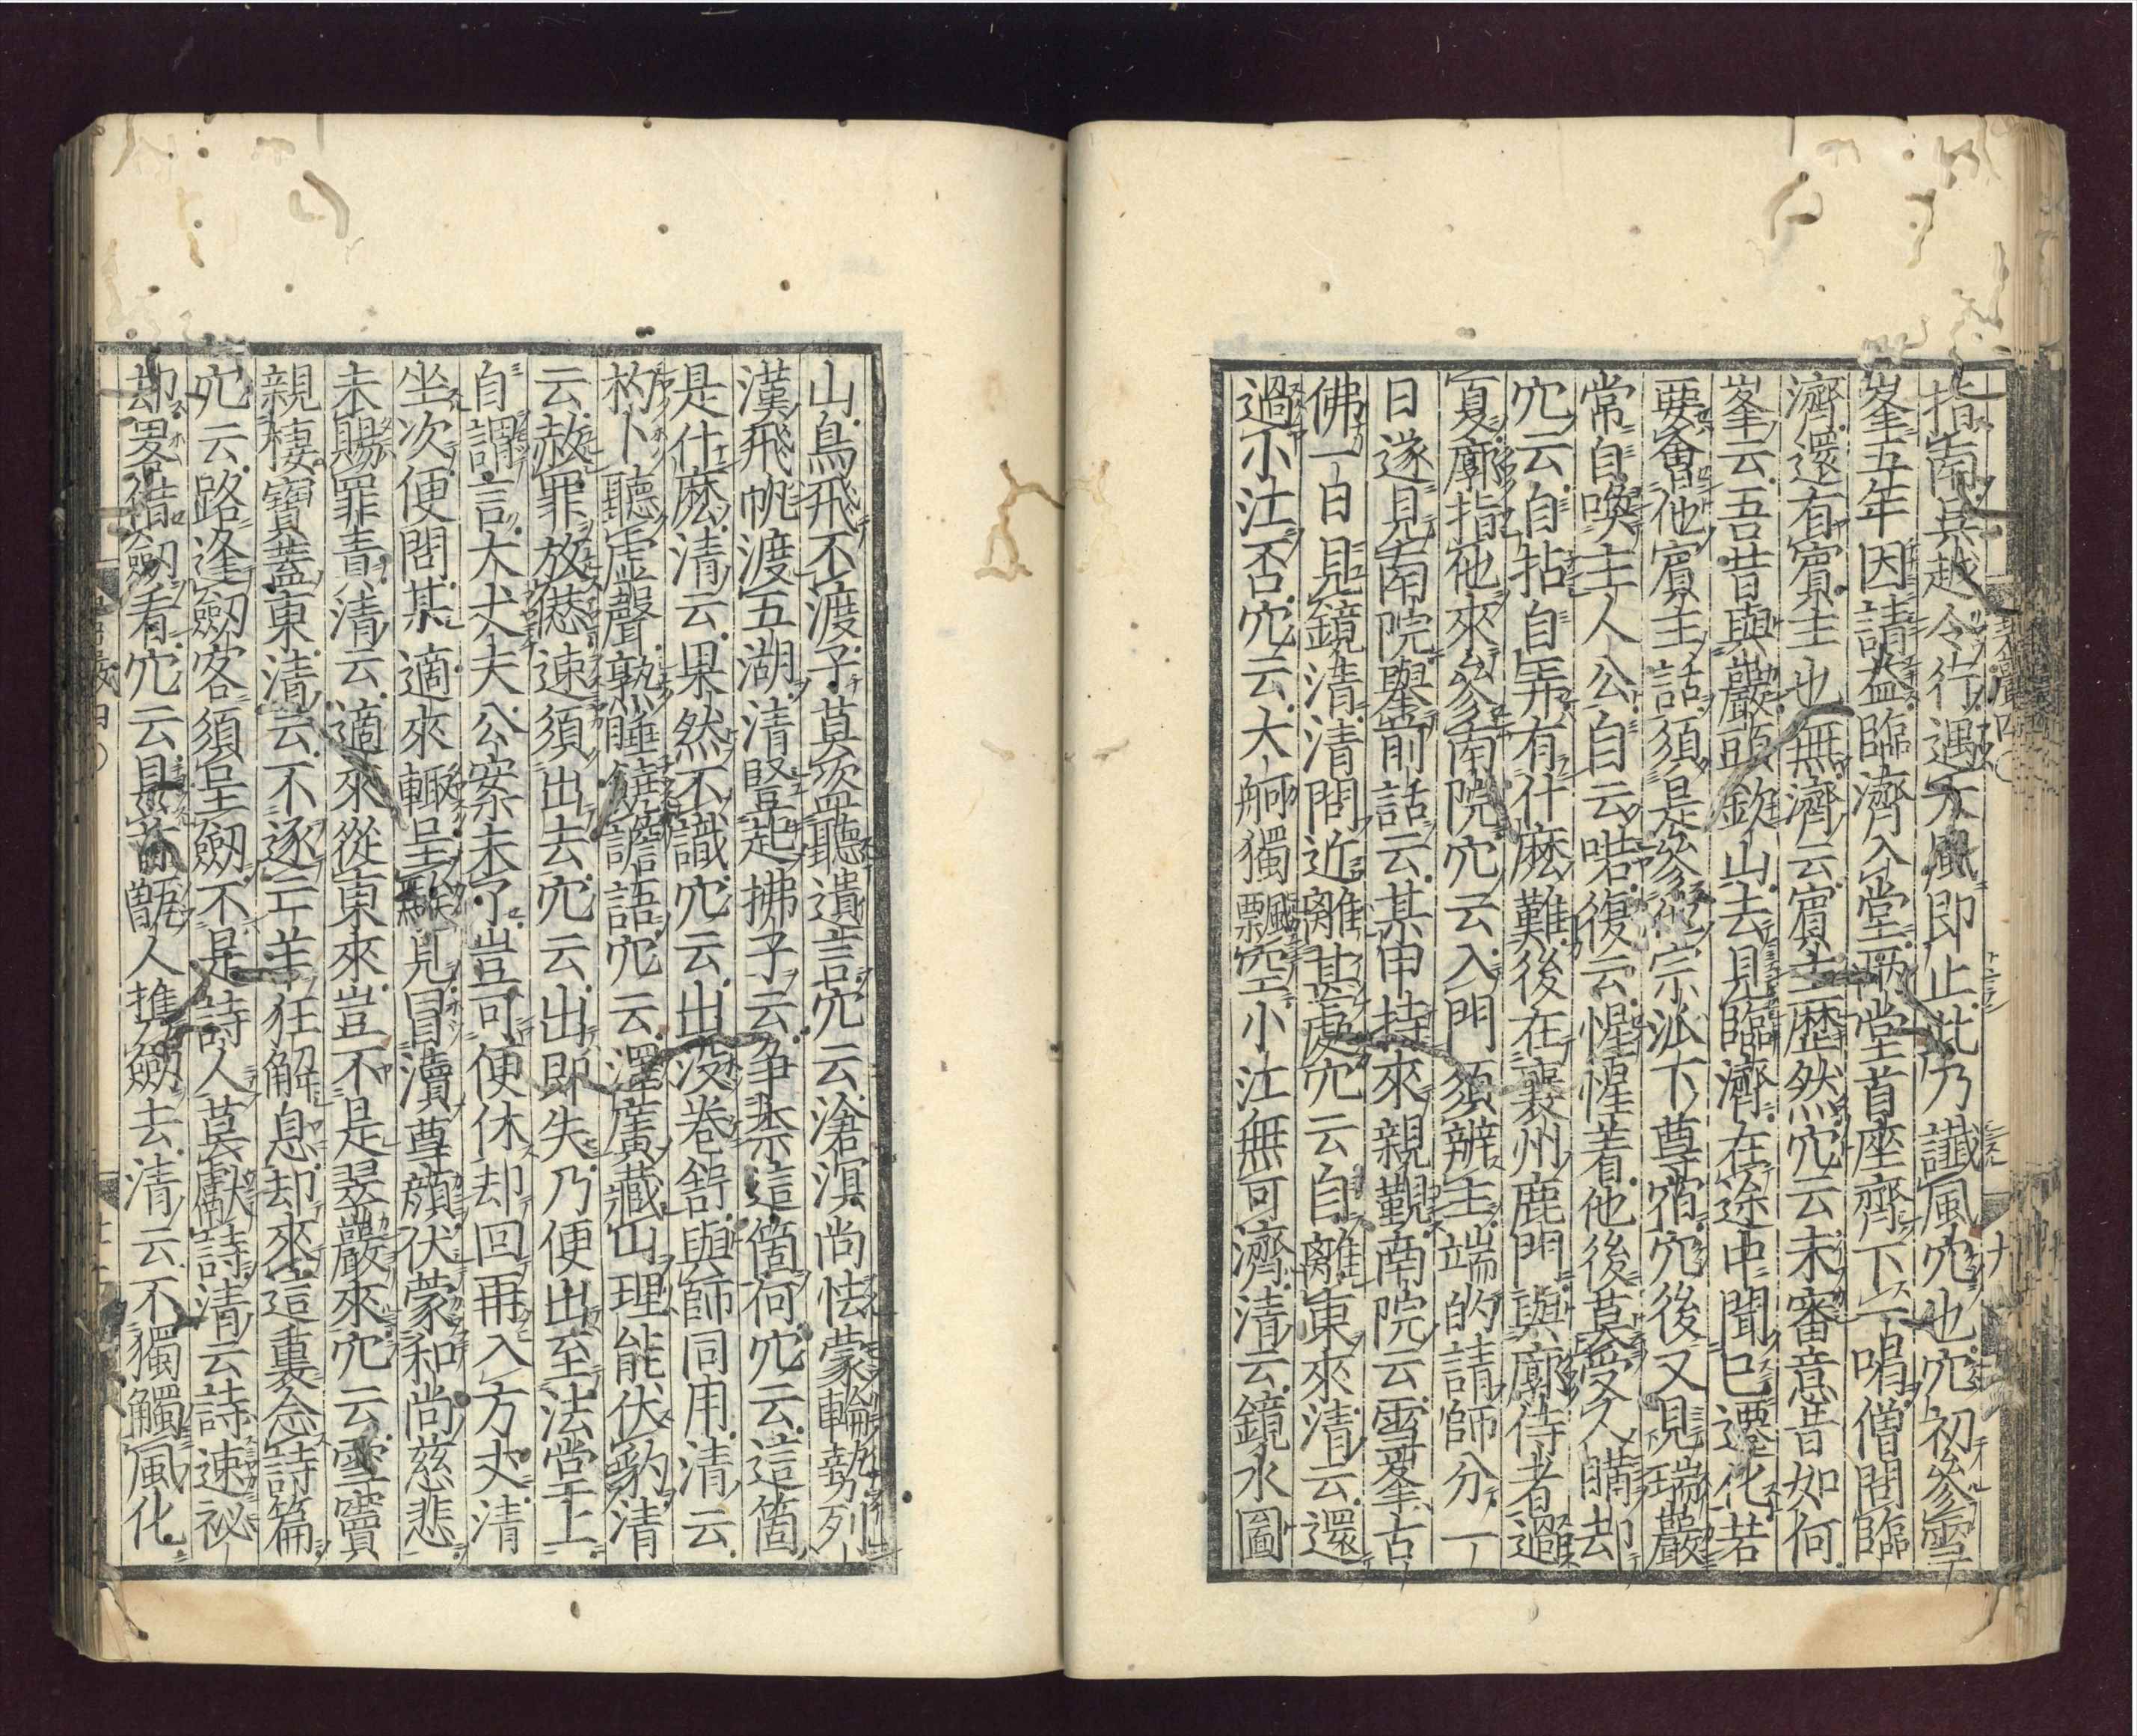 指南吳越令行遇大風即止此乃讖風穴也穴初參雪
峯五年因請益臨濟入堂兩堂首座齊下一喝僧問臨
濟還有賓主也無濟云賓主歷然穴云未審意旨如何
峯云吾昔與巖頭欽山去見臨濟在途中聞已遷化若
要會他賓主話須是參他宗派下尊宿穴後又見瑞巖
常自喚主人公自云喏復云惺惺着他後莫受人瞞却
穴云自拈自弄有什麽難後在襄州鹿門與廓侍者過
夏廓指他來參南院穴云入門須辨主端的請師分一
日遂見南院舉前話云某甲持來親覲南院云雪峯古
佛一日見鏡清清問近離甚處穴云自離東來清云還
過小江否穴云大舸獨飄空小江無可濟清云鏡水圖
山鳥飛不渡子莫盗聽遺言穴云滄溟尚怯蒙輪勢列
漢飛帆渡五湖清竪起拂子云爭柰這箇何穴云這箇
是什麽清云果然不識穴云出沒卷舒與師同用清云
杓卜聽虛聲熟睡饒譫語穴云澤廣藏山理能伏豹清
云赦罪放愆速須出去穴云出即失乃便出至法堂上
自謂言大丈夫公案未了豈可便休却回再入方丈清
坐次便問某適來輙呈騃見冒瀆尊顏伏蒙和尚慈悲
未賜罪責清云適來從東來豈不是翠巖來穴云雪竇
親棲寶蓋東清云不逐亡羊狂解息却來這裏念詩篇
穴云路逢劒客須呈劒不是詩人莫獻詩清云詩速祕
却畧借劒看穴云縣首甑人携劒去清云不獨觸風化